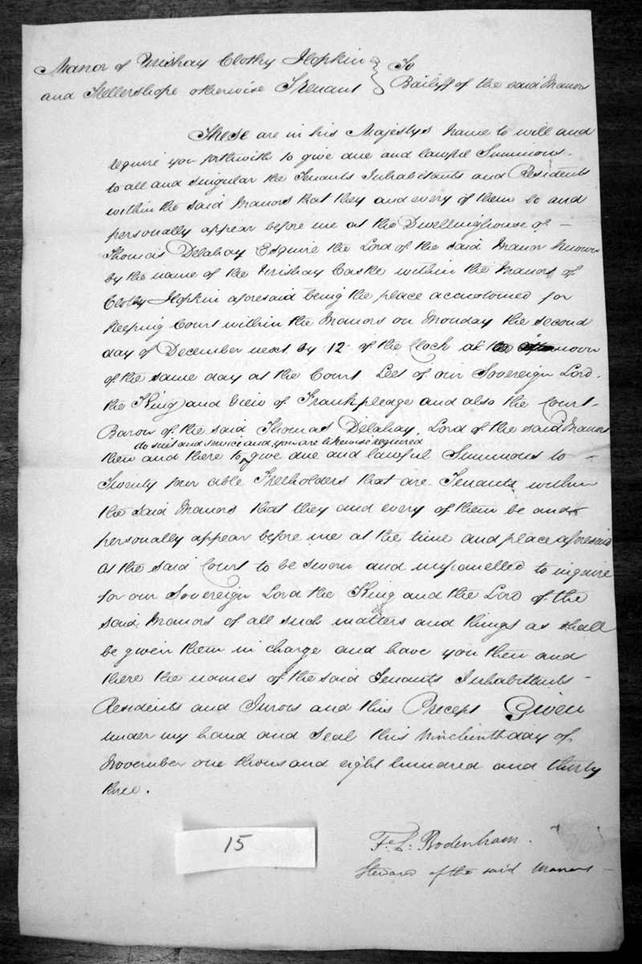 Manor of Urishay Clothy Hopkin } To
and Hellershope otherwise Trenant } Bailiff of the said Manors
These are in his Majestys name to will and
require you forthwith to give due and lawful Summons
to all and singular the Tenants Inhabitants and Residents
within the said Manors that they and every of them be and
personally appear before me at the Dwellinghouse of
Thomas Delahay Esquire the Lord of the said Manor known
by the name of the Urishay Castle within the Manors of
Clothy Hopkin aforesaid being the place accustomed for
keeping Court within the Manors on Monday the second
day of December next by 12 of the Clock at noon
of the same day at the Court Leet of our Sovereign Lord
the King and View of Frankpledge and also the Court
Baron of the said Thomas Delahay Lord of the said Manors
do suit and service and you are likewise required
then and there to give due and lawful Summons to
Twenty four able Freeholders that are Tenants within
the said Manors that they and every of them be and
personally appear before me at the time and place aforesaid
at the said Court to be sworn and impanelled to inquire
for our Sovereign Lord the King and the Lord of the
said Manors of all such matters and things as shall
be given them in charge and have you then and
there the names of the said Tenants Inhabitants
Residents and Jurors and this Precept Given
under my hand and Seal this Nineteenth day of
November one thousand eight hundred and thirty
three.
15
F. L. Bodenham
Steward of the said Manors